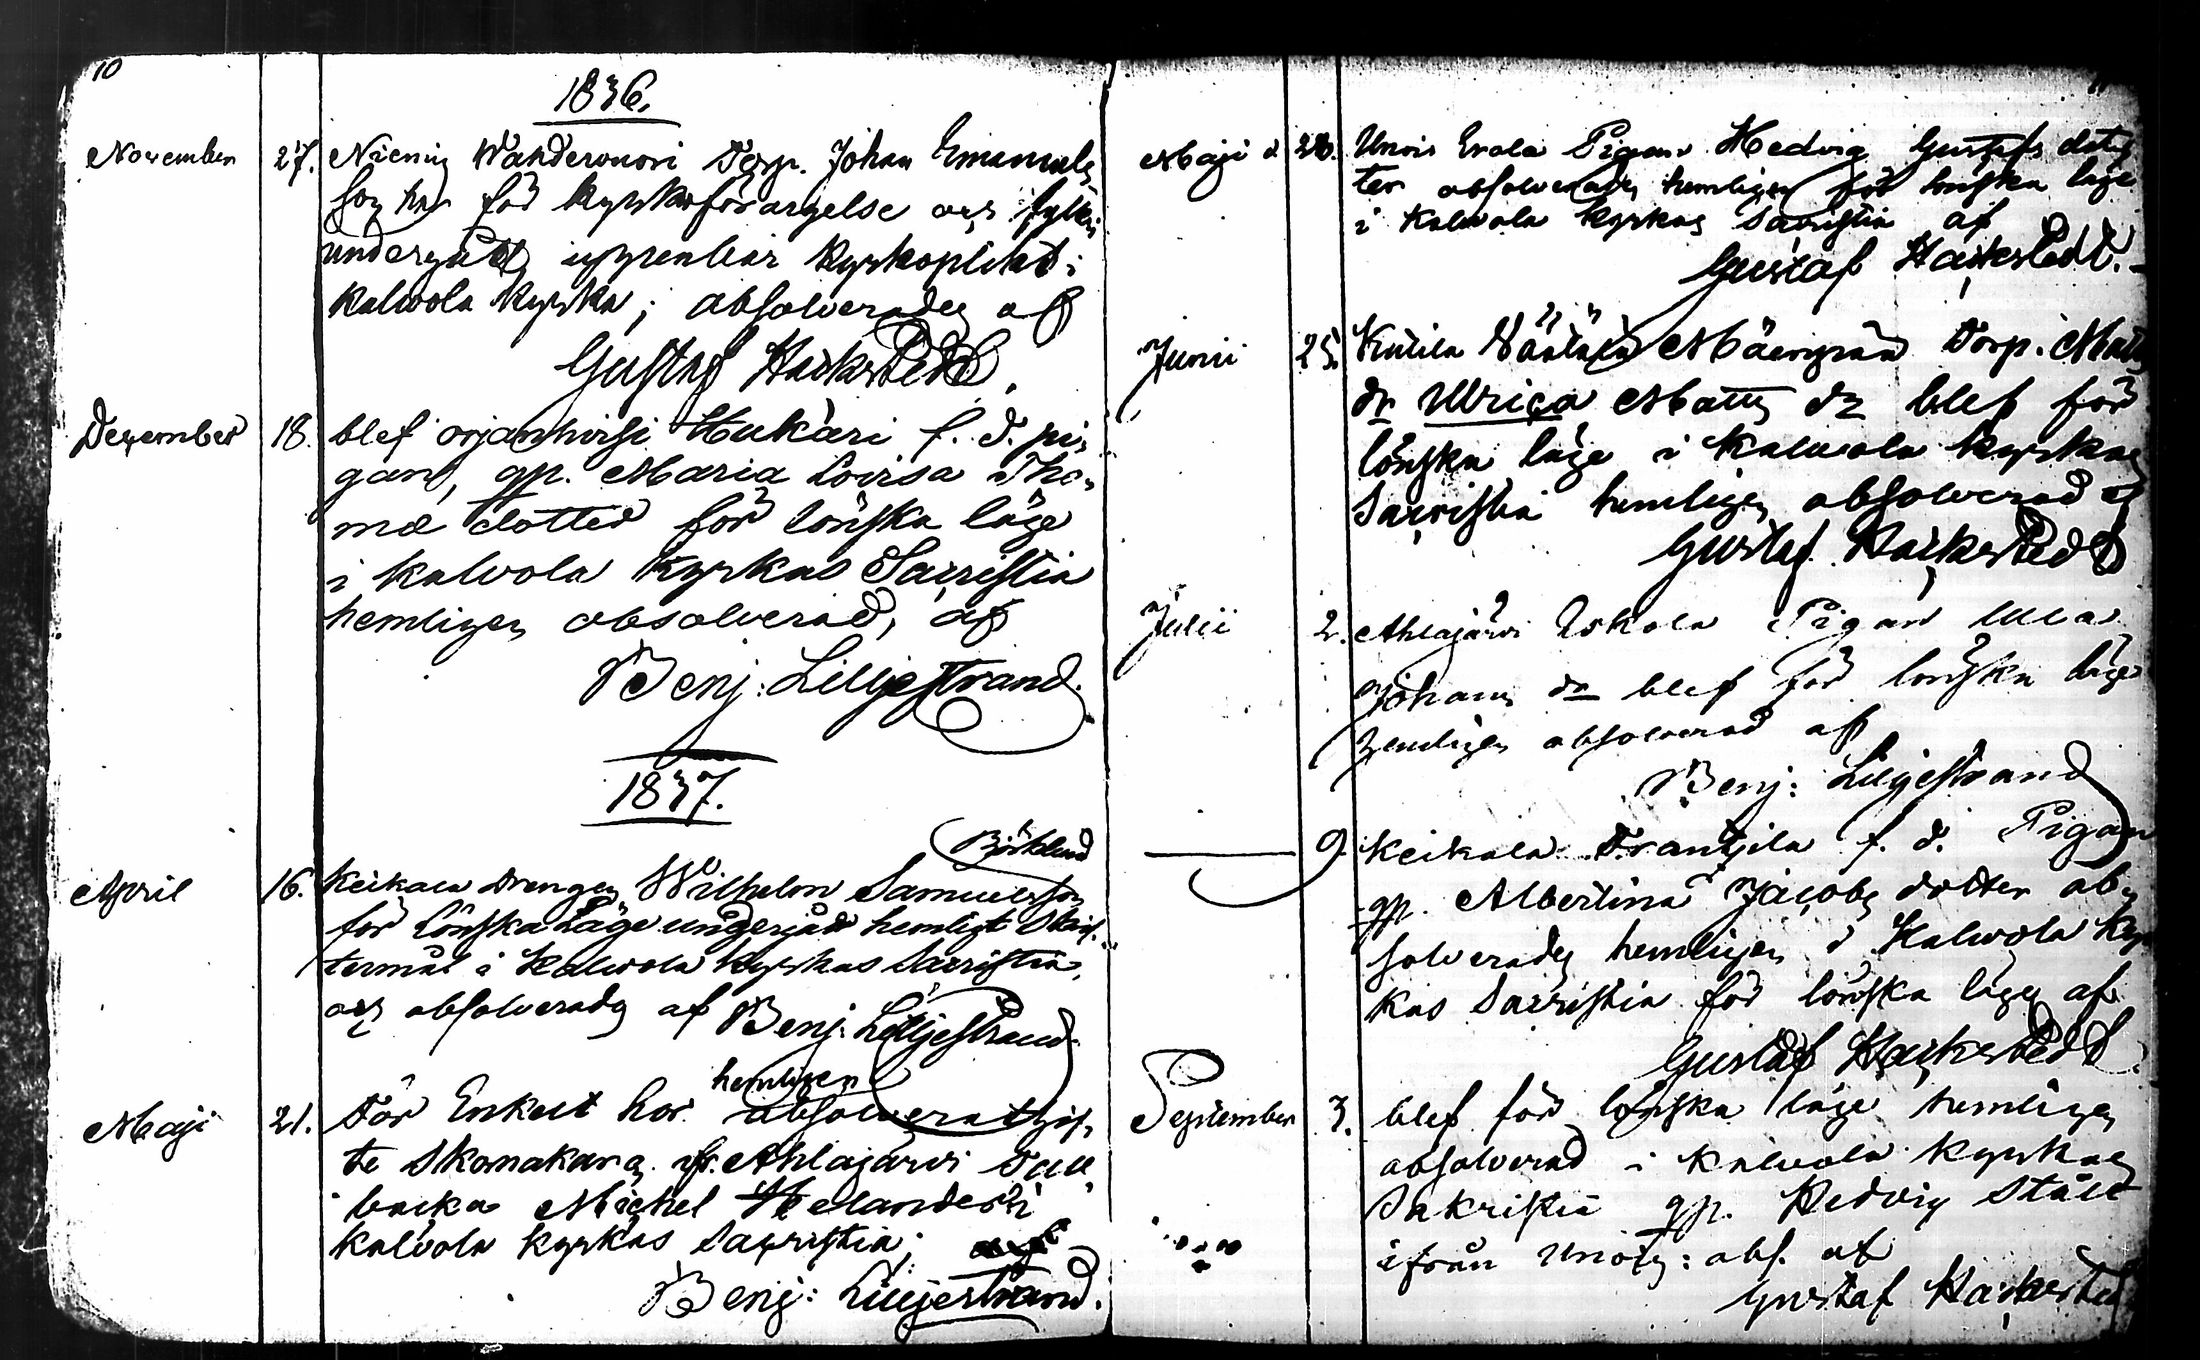 10
1836.
November 27. Niemis Wanderouori Torp. Johan Emanuels
son har för kyrkoförargelse och fylleri
undergått uppenbar kyrkoplikt i
Kalwola kyrka; absolverades af
Gustaf Hackstedt.
December 18. blef orjanhirsi Hukari f. d. pi-
gan, qp. Maria Lovisa Tho-
mæ dotter för lönska läge
i Kalvola kyrkas Sacristia
hemligen absolverad, af
Benj: Liljestrand
1837.
Björklund
April 16. Keikala Drengen Wilhelm Samuelsson
för Lönska Läge undergådt hemligt Skrif-
termål i Kalwola kyrkas Sacristia,
och absolverades af Benj: Liljestrand
hemligen
Maji 21. För Enkelt hor absolverats gif-
te Skomakaren fr. Ahlajärvi
backa Michel Helander i
Kalvola kyrkas Sacristia; af
Benj: Liljestrand.
Maji d 28. Unois Erola Pigan Hedvig Gustafs dot-
ter absolverades hemligen för lönska läge
i Kalvola kyrkas Sacristia af
Gustaf Hackstedt.
Junii 25. Kutila Torp. Matts
dr Ulrica Matts dr blef för
lönska läge i Kalvola kyrkas
Sacristia hemligen absolverad af
Gustaf Hackstedt
Julii 2. Ahlajärvi Uskola Pigan Ulla
Johans dr blef för lönska läge
hemligen absolverad af
Benj: Liljestrand
9. Keikala Frantzila f. d. Pigan
qp. Albertina Jacobs dotter ab-
solverades hemligen i Kalwola kyr
kas Sacristia för lönska läge af
Gustaf Hackstedt
September 3. blef för lönska läge hemligen
absolverad i Kalvola kyrkas
Sakristia qp. Hedvig Ståhl
ifrån Unois: abs. af
Gustaf Hackstedt